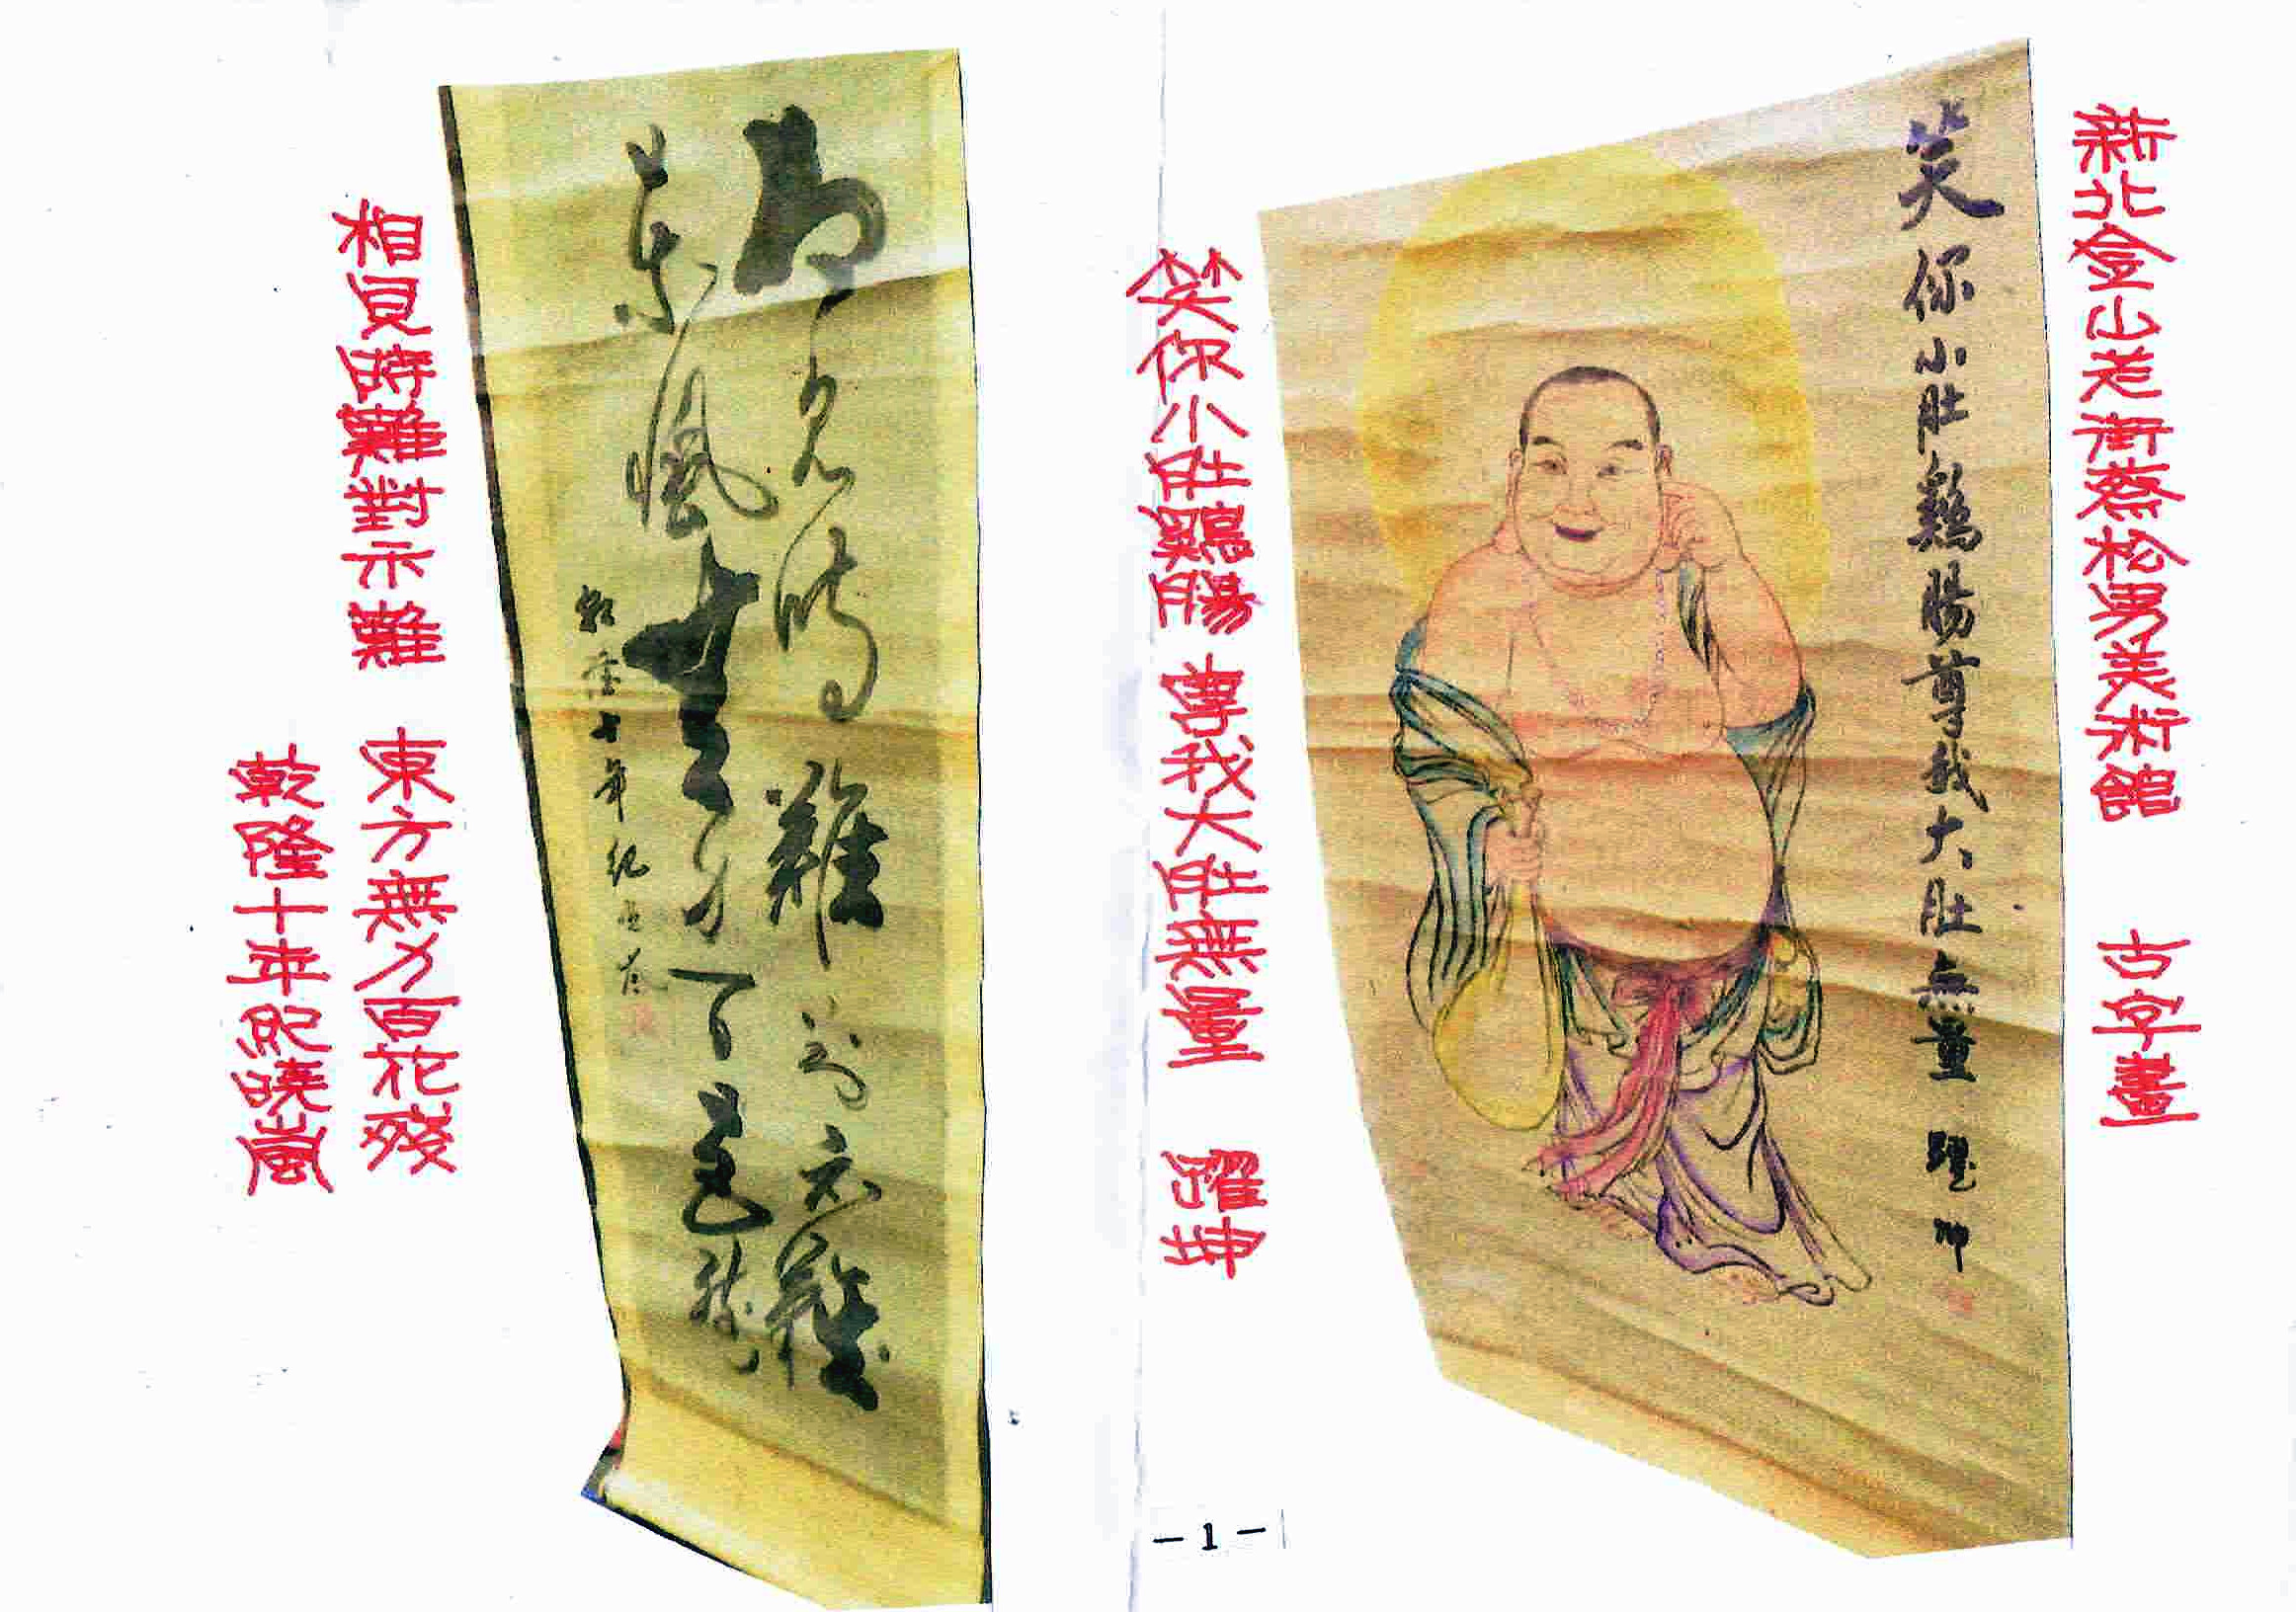 新北金山老街蔡松男美術館 古字畫
笑你小肚鷄腸尊我大肚無量 躍坤
笑你小肚鷄腸 尊我大肚無量 躍坤
－1－
相見時難別亦難
東風無力百花殘
乾隆十年紀曉嵐
相見時難對示難 東方無力百花殘
乾隆十年紀曉嵐